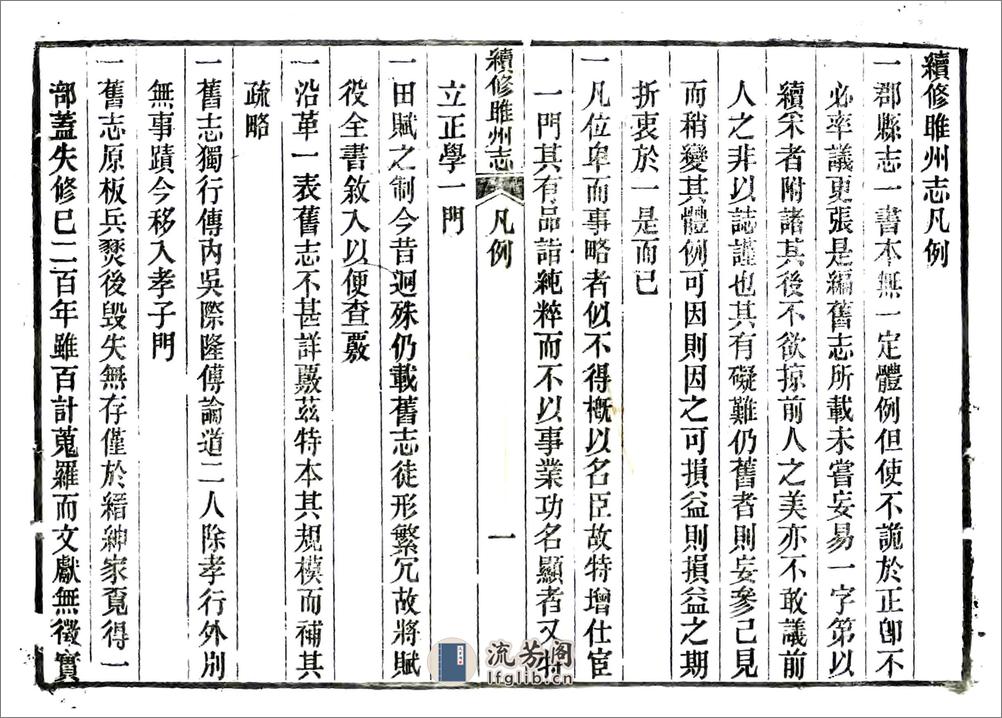 續修睢州志凡例
一郡縣志一書本無一定體例但使不詭於正卽不
必率議更張是編舊志所載未嘗妄易一字第以
續采者附諸其後不欲掠前人之美亦不敢議前
人之非以誌謹也其有礙難仍舊者則妄參己見
而稍變其體例可因則因之可損益則損益之期
折衷於一是而已
一凡位卑而事略者似不得概以名臣故特增仕宦
一門其有品詣純粹而不以事業功名顯者又特
續修睢州志 凡例 一
立正學一門
一田賦之制今昔迥殊仍載舊志徒形繁冗故將賦
役全書敘入以便查覈
一沿革一表舊志不甚詳覈茲特本其規模而補其
疏略
一舊志獨行傳內吳際隆傅論道二人除孝行外別
無事蹟今移入孝子門
一舊志原板兵燹後毀失無存僅於縉紳家覔得一
部蓋失修已二百年雖百計蒐羅而文獻無徵實
流芳阁
lfglib.cn